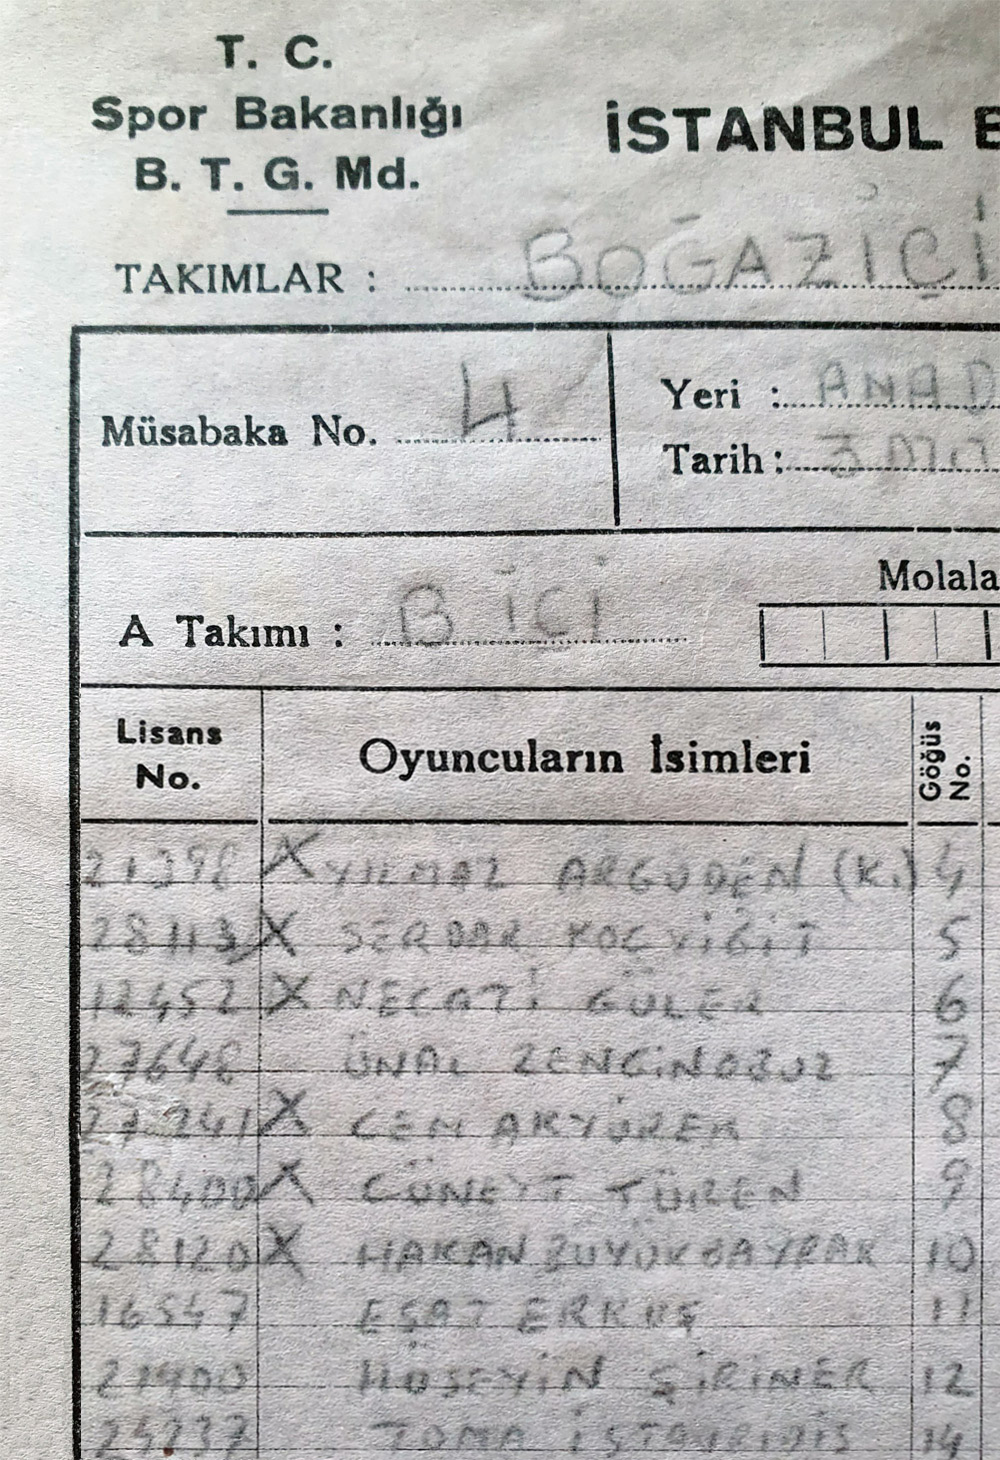 T. C.
Spor Bakanlığı
B. T. G. Md.
İSTANBUL B
TAKIMLAR : BOĞAZİÇİ
Müsabaka No. 4
Yeri : ANAD
Tarih :
A Takımı : B İÇİ
Molala
Lisans No.
Oyuncuların İsimleri
Göğüs No.
21398 X YILMAZ ARGÜDEN (K.) 4
28113 X SERDAR KOÇYİĞİT 5
12452 X NECATİ GÜLER 6
27648 ÜNAL ZENGİNOBUZ 7
X CEM AKYÜREK 8
28400 X CÜNEYT TÜREN 9
28120 X HAKAN BÜYÜKBAYRAK 10
16547 EŞAT ERKUŞ 11
HÜSEYİN ŞİRİNER 12
TOMA 14